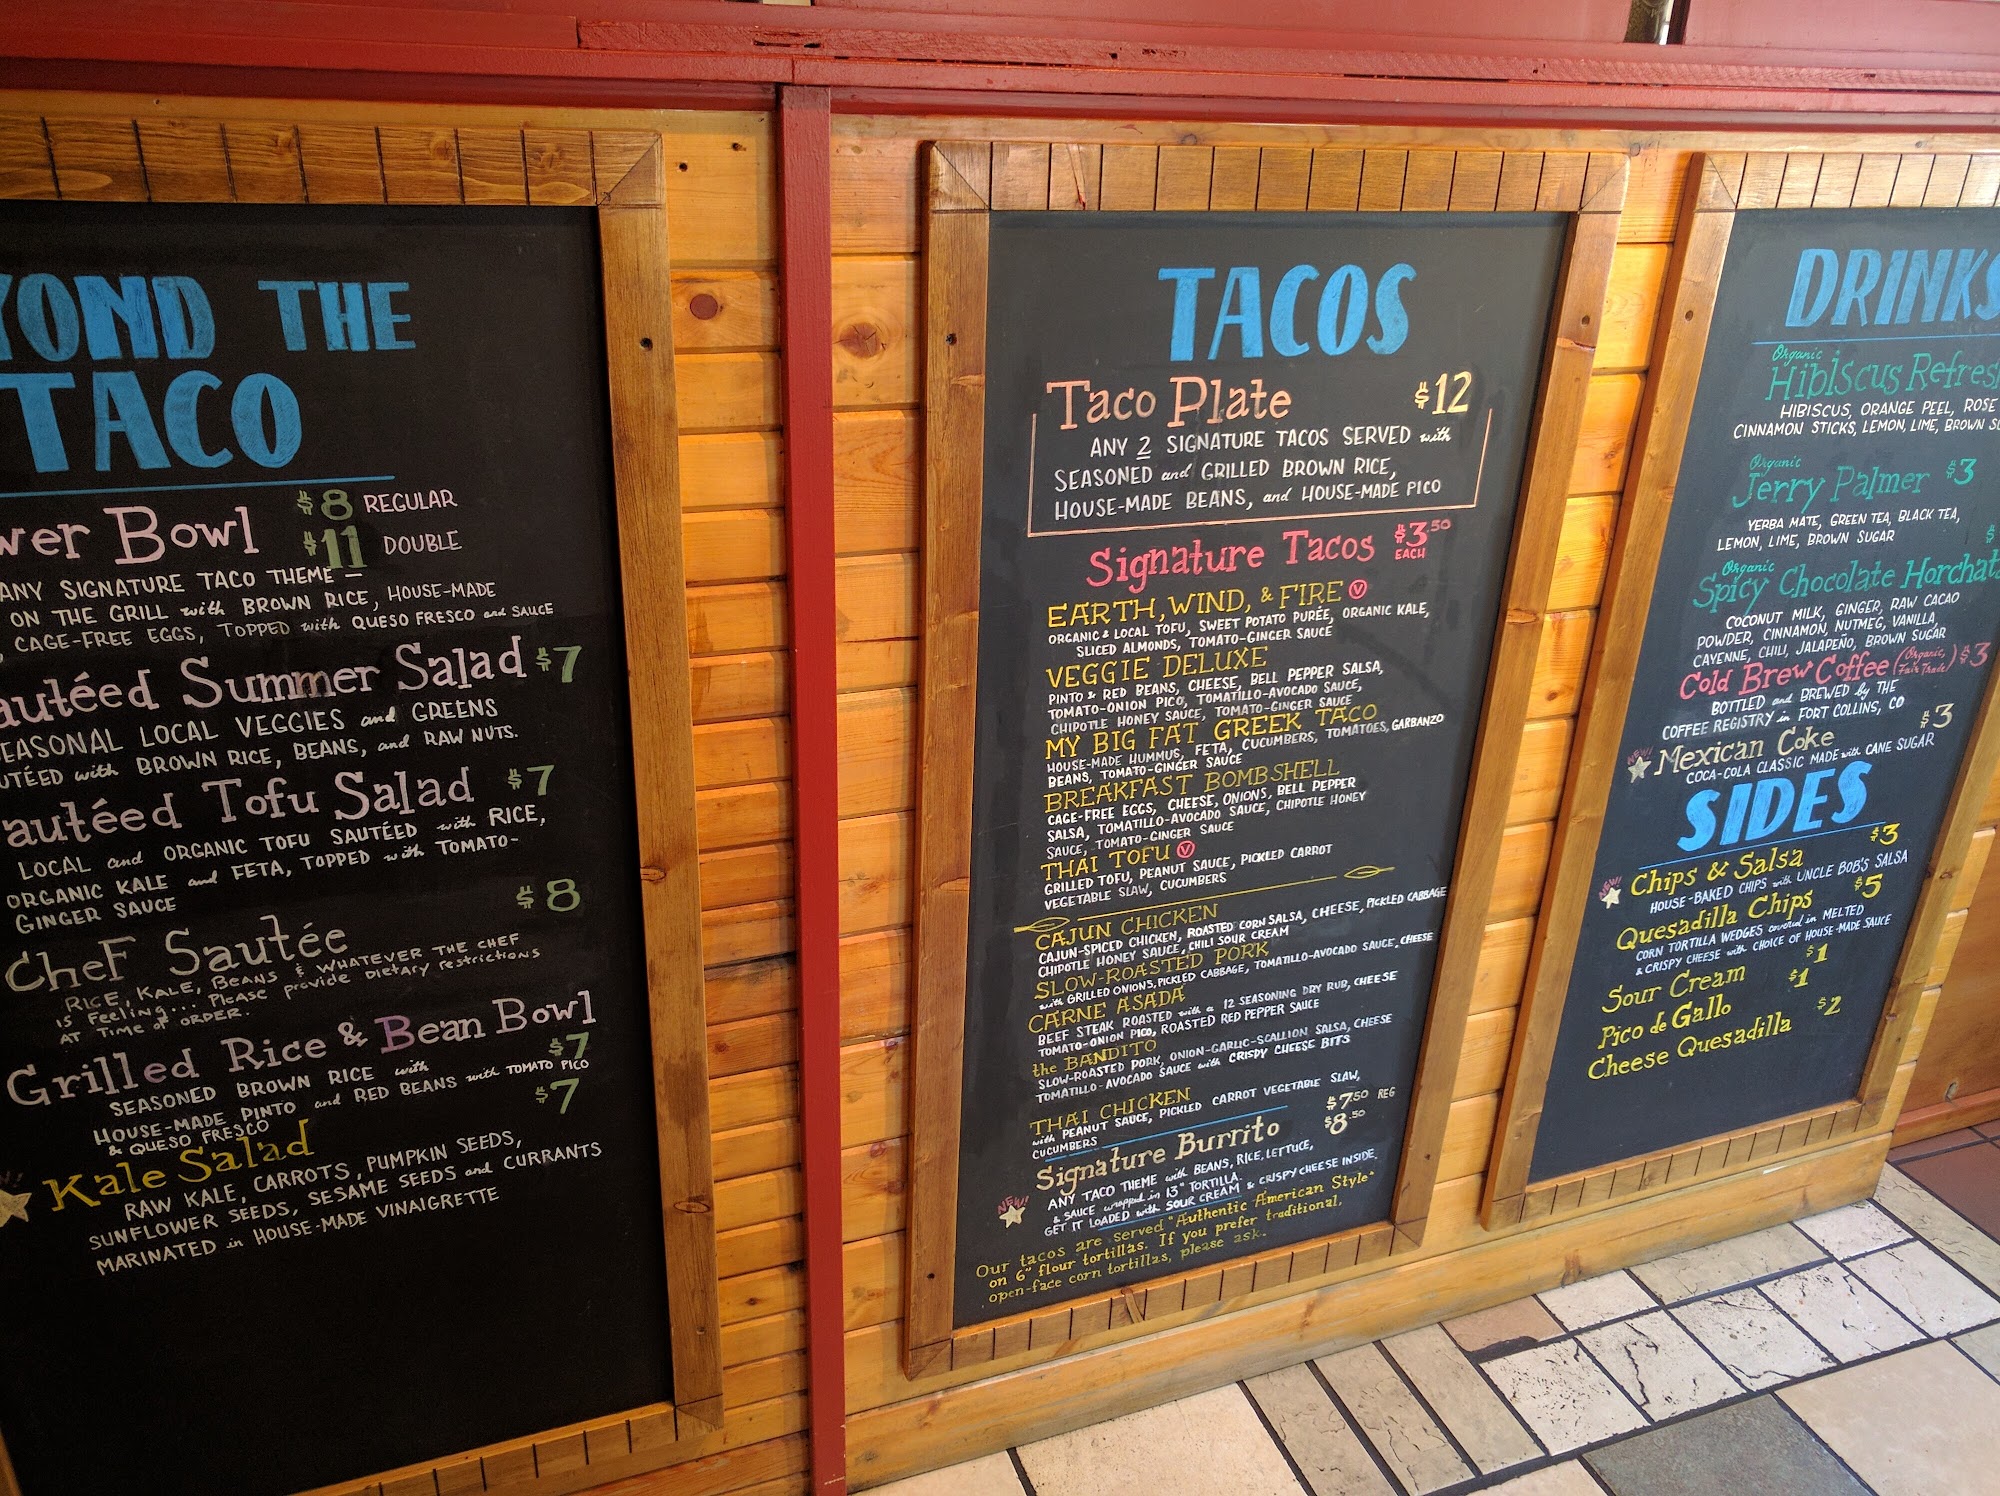 YOND THE
TACO
wer Bowl $8 REGULAR
$11 DOUBLE
ANY SIGNATURE TACO THEME —
ON THE GRILL with BROWN RICE, HOUSE-MADE
, CAGE-FREE EGGS, TOPPED with QUESO FRESCO and SAUCE
autéed Summer Salad $7
SEASONAL LOCAL VEGGIES and GREENS
UTÉED with BROWN RICE, BEANS, and RAW NUTS.
autéed Tofu Salad $7
LOCAL and ORGANIC TOFU SAUTÉED with RICE,
ORGANIC KALE and FETA, TOPPED with TOMATO-
GINGER SAUCE
CheF Sautée $8
RICE, KALE, BEANS & WHATEVER THE CHEF
is Feeling... Please provide Dietary restrictions
AT Time of ORDER.
Grilled Rice & Bean Bowl
SEASONED BROWN RICE with $7
HOUSE-MADE PINTO and RED BEANS with TOMATO PICO
& QUESO FRESCO
Kale Salad $7
RAW KALE, CARROTS, PUMPKIN SEEDS,
SUNFLOWER SEEDS, SESAME SEEDS and CURRANTS
MARINATED in HOUSE-MADE VINAIGRETTE
TACOS
Taco Plate $12
ANY 2 SIGNATURE TACOS SERVED with
SEASONED and GRILLED BROWN RICE,
HOUSE-MADE BEANS, and HOUSE-MADE PICO
Signature Tacos $3.50 EACH
EARTH, WIND, & FIRE V
ORGANIC & LOCAL TOFU, SWEET POTATO PURÉE, ORGANIC KALE,
SLICED ALMONDS, TOMATO-GINGER SAUCE
VEGGIE DELUXE
PINTO & RED BEANS, CHEESE, BELL PEPPER SALSA,
TOMATO-ONION PICO, TOMATILLO-AVOCADO SAUCE,
CHIPOTLE HONEY SAUCE, TOMATO-GINGER SAUCE
MY BIG FAT GREEK TACO
HOUSE-MADE HUMMUS, FETA, CUCUMBERS, TOMATOES, GARBANZO
BEANS, TOMATO-GINGER SAUCE
BREAKFAST BOMBSHELL
CAGE-FREE EGGS, CHEESE, ONIONS, BELL PEPPER
SALSA, TOMATILLO-AVOCADO SAUCE, CHIPOTLE HONEY
SAUCE, TOMATO-GINGER SAUCE
THAI TOFU V
GRILLED TOFU, PEANUT SAUCE, PICKLED CARROT
VEGETABLE SLAW, CUCUMBERS
CAJUN CHICKEN
CAJUN-SPICED CHICKEN, ROASTED CORN SALSA, CHEESE, PICKLED CABBAGE
CHIPOTLE HONEY SAUCE, CHILI SOUR CREAM
SLOW-ROASTED PORK
with GRILLED ONIONS, PICKLED CABBAGE, TOMATILLO-AVOCADO SAUCE, CHEESE
CARNE ASADA
BEEF STEAK ROASTED with a 12 SEASONING DRY RUB, CHEESE
TOMATO-ONION PICO, ROASTED RED PEPPER SAUCE
the BANDITO
SLOW-ROASTED PORK, ONION-GARLIC-SCALLION SALSA, CHEESE
TOMATILLO-AVOCADO SAUCE with CRISPY CHEESE BITS
THAI CHICKEN
with PEANUT SAUCE, PICKLED CARROT VEGETABLE SLAW,
CUCUMBERS
Signature Burrito $7.50 REG
$8.50
NEW!
ANY TACO THEME with BEANS, RICE, LETTUCE,
& SAUCE wrapped in 13" TORTILLA.
GET IT LOADED with SOUR CREAM & CRISPY CHEESE INSIDE.
Our tacos are served "Authentic American Style"
on 6" flour tortillas. If you prefer traditional,
open-face corn tortillas, please ask.
DRINKS
Organic
Hibiscus Refres
HIBISCUS, ORANGE PEEL, ROSE
CINNAMON STICKS, LEMON, LIME, BROWN SU
Organic
Jerry Palmer $3
YERBA MATE, GREEN TEA, BLACK TEA,
LEMON, LIME, BROWN SUGAR
$
Organic
Spicy Chocolate Horchata
COCONUT MILK, GINGER, RAW CACAO
POWDER, CINNAMON, NUTMEG, VANILLA,
CAYENNE, CHILI, JALAPEÑO, BROWN SUGAR
Cold Brew Coffee (Organic, Fair Trade) $3
BOTTLED and BREWED by THE
COFFEE REGISTRY in FORT COLLINS, CO
NEW! Mexican Coke $3
COCA-COLA CLASSIC MADE with CANE SUGAR
SIDES
NEW! Chips & Salsa $3
HOUSE-BAKED CHIPS with UNCLE BOB'S SALSA
Quesadilla Chips $5
CORN TORTILLA WEDGES covered in MELTED
& CRISPY CHEESE with CHOICE OF HOUSE-MADE SAUCE
Sour Cream $1
Pico de Gallo $1
Cheese Quesadilla $2